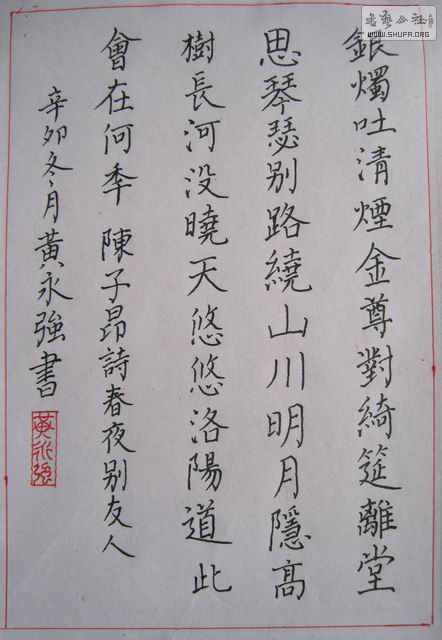 銀燭吐清煙金尊對綺筵離堂
思琴瑟别路繞山川明月隱高
樹長河没曉天悠悠洛陽道此
會在何季 陳子昂詩春夜别友人
辛卯冬月黃永強書
黃永強
書藝公社
WWW.SHUFA.ORG